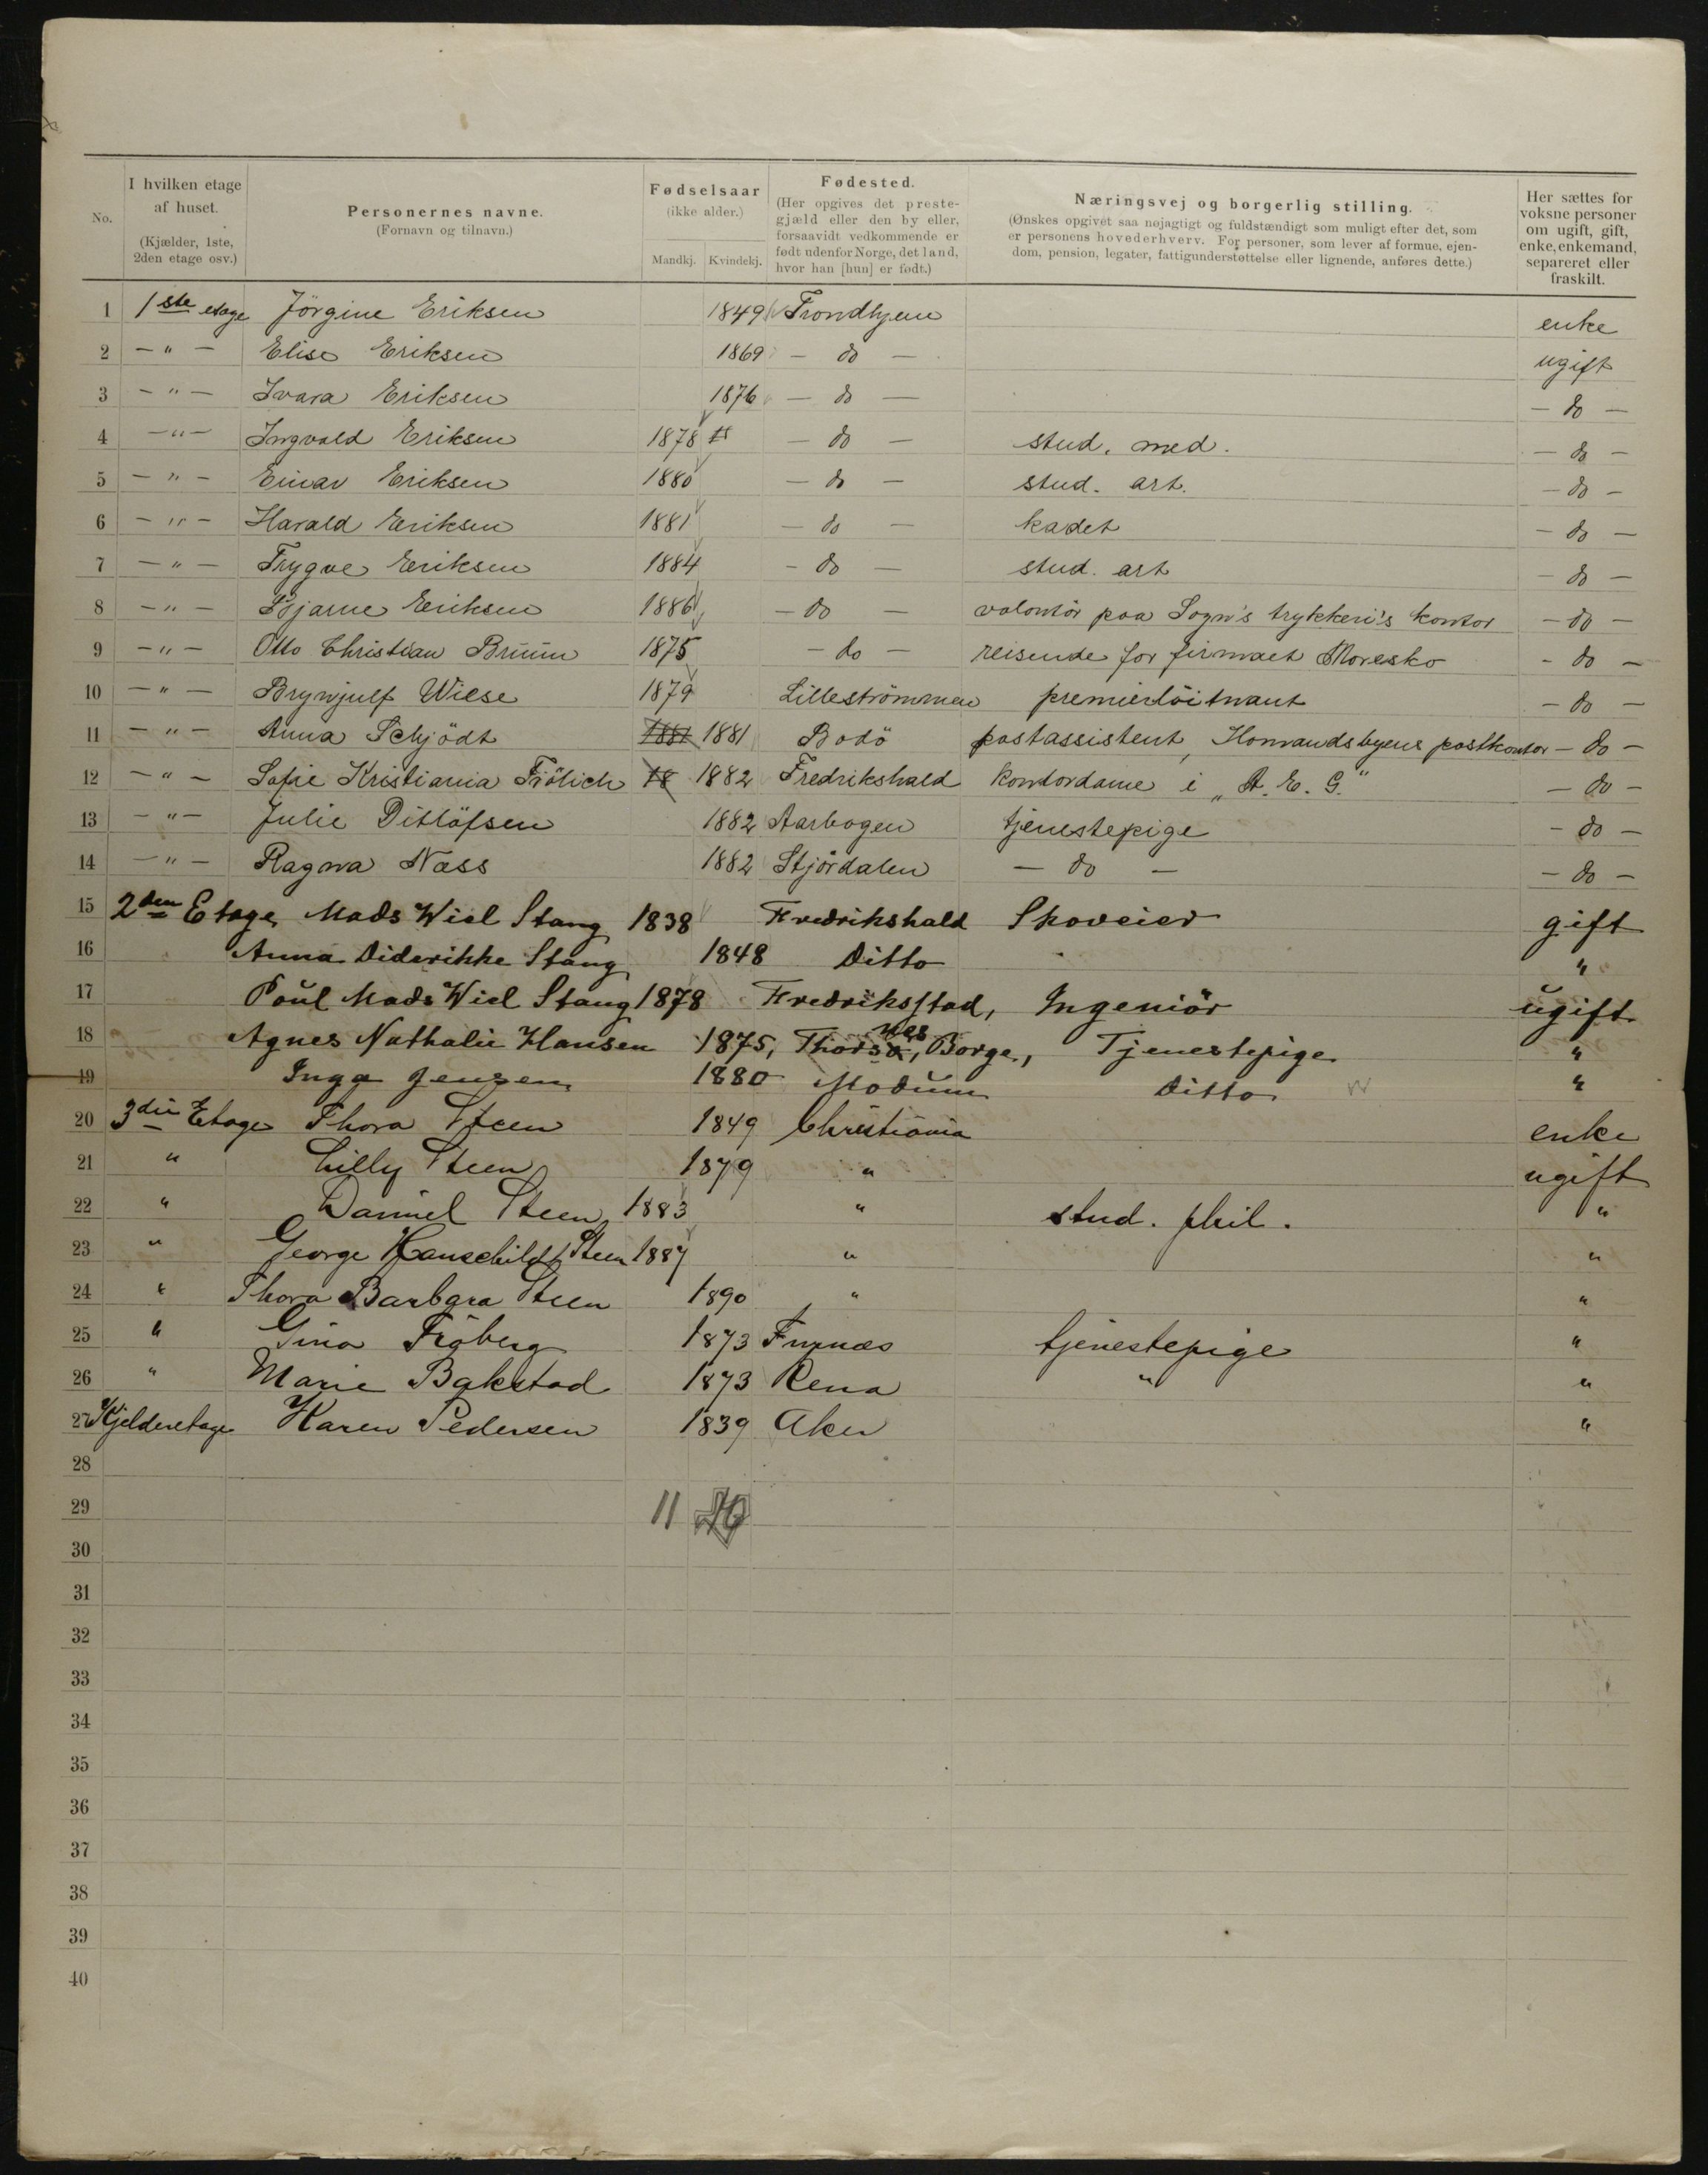 No.
I hvilken etage af huset. (Kjælder, 1ste, 2den etage osv.)
Personernes navne. (Fornavn og tilnavn.)
Fødselsaar (ikke alder.) Mandkj. Kvindekj.
Fødested. (Her opgives det prestegjæld eller den by eller, forsaavidt vedkommende er født udenfor Norge, det land, hvor han [hun] er født.)
Næringsvej og borgerlig stilling. (Ønskes opgivet saa nøjagtigt og fuldstændigt som muligt efter det, som er personens hovederhverv. For personer, som lever af formue, ejendom, pension, legater, fattigunderstøttelse eller lignende, anføres dette.)
Her sættes for voksne personer om ugift, gift, enke, enkemand, separeret eller fraskilt.
1 1ste etage Jörgine Eriksen 1849 Trondhjem enke
2 — " — Elise Eriksen 1869 — do — ugift
3 — " — Ivara Eriksen 1876 — do — — do —
4 — " — Ingvald Eriksen 1878 — do — stud. med. — do —
5 — " — Einar Eriksen 1880 — do — stud. art. — do —
6 — " — Harald Eriksen 1881 — do — kadet — do —
7 — " — Trygve Eriksen 1884 — do — stud. art — do —
8 — " — Bjarne Eriksen 1886 — do — volontör paa Sogn's trykkeri's kontor — do —
9 — " — Otto Christian Bruun 1875 — do — reisende for firmaet Moresko — do —
10 — " — Brynjulf Wiese 1879 Lilleströmmen premierlöitnant — do —
11 — " — Anna Schjödt 1881 1881 Bodö postassistent, Homandsbyens postkontor — do —
12 — " — Sofie Kristiania Frölich 18 1882 Fredrikshald Kontordame i „A. E. G." — do —
13 — " — Julie Ditlöfsen 1882 Aarbogen tjenestepige — do —
14 — " — Ragna Næss 1882 Stjördalen — do — — do —
15 2den Etage Mads Wiel Stang 1838 Fredrikshald Skoveier gift
16 Anna Diderikke Stang 1848 Ditto "
17 Poul Mads Wiel Stang 1878 Fredriksstad, Ingeniör ugift
18 Agnes Nathalie Hansen 1875, Thorsnes, Borge, Tjenestepige "
19 Inga Jensen 1880 Modum Ditto "
20 3die Etage Thora Steen 1849 Christiania enke
21 " Lilly Steen 1879 " ugift
22 " Daniel Steen 1883 " stud. phil. "
23 " George Hauschildt Steen 1887 " "
24 " Thora Barbara Steen 1890 " "
25 " Gina Fröberg 1873 Furnæs tjenestepige "
26 " Marie Bakstad 1873 Rena " "
27 Kjelderetage Karen Pedersen 1839 Aker "
28
29 11
30
31
32
33
34
35
36
37
38
39
40